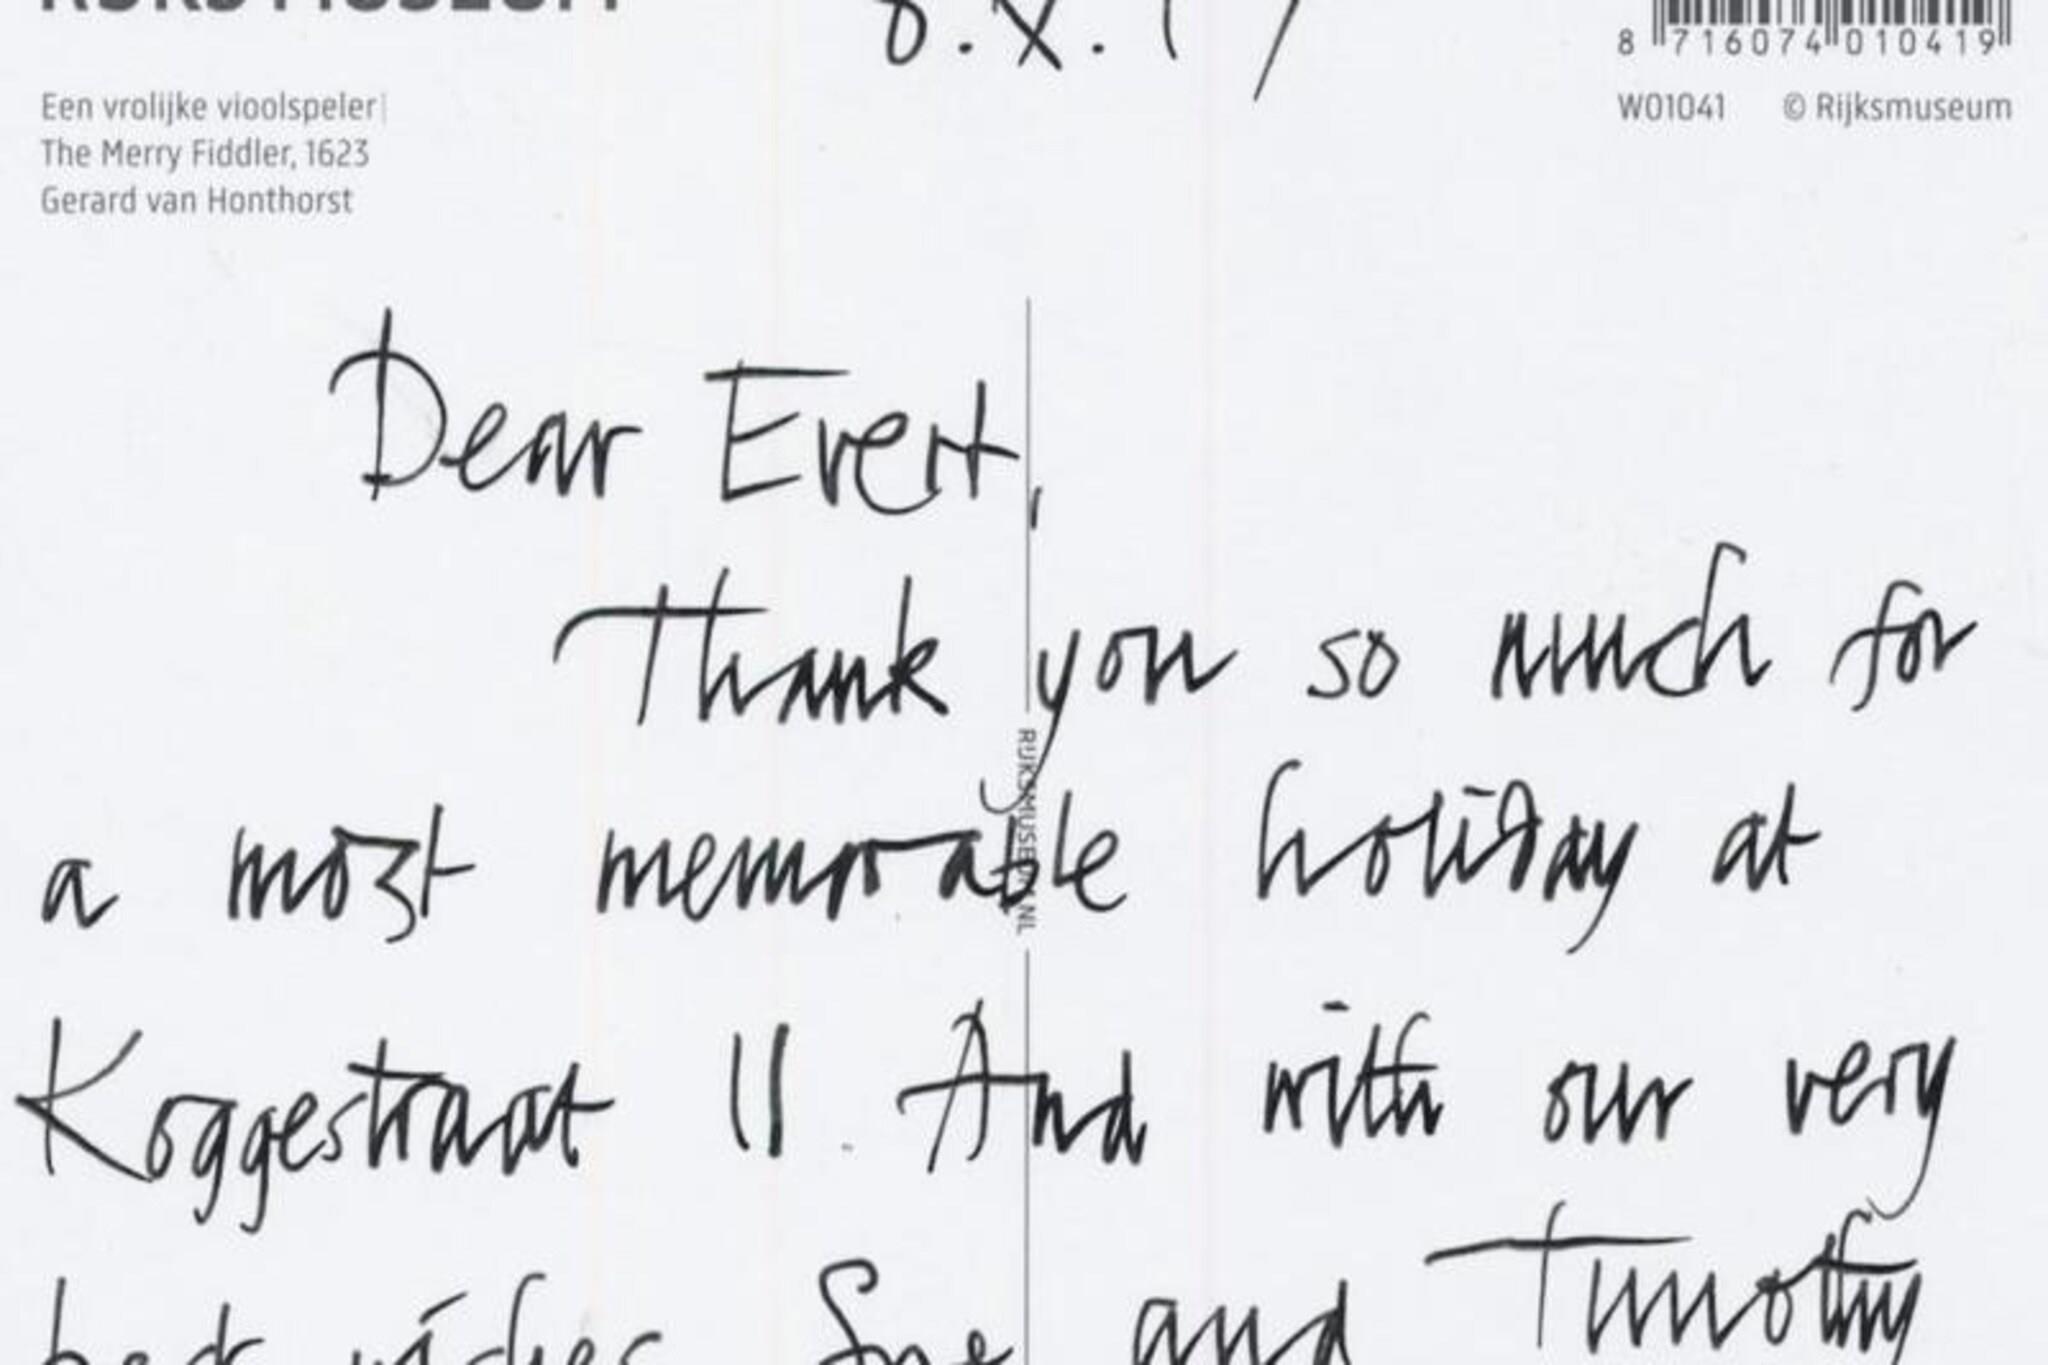 RIJKSMUSEUM
8.X.17
8 716074 010419
W01041 © Rijksmuseum
Een vrolijke vioolspeler|
The Merry Fiddler, 1623
Gerard van Honthorst
Dear Evert,
Thank you so much for
a most memorable holiday at
Koggestraat 11. And with our very
best wishes Sue and Timothy
RIJKSMUSEUM.NL